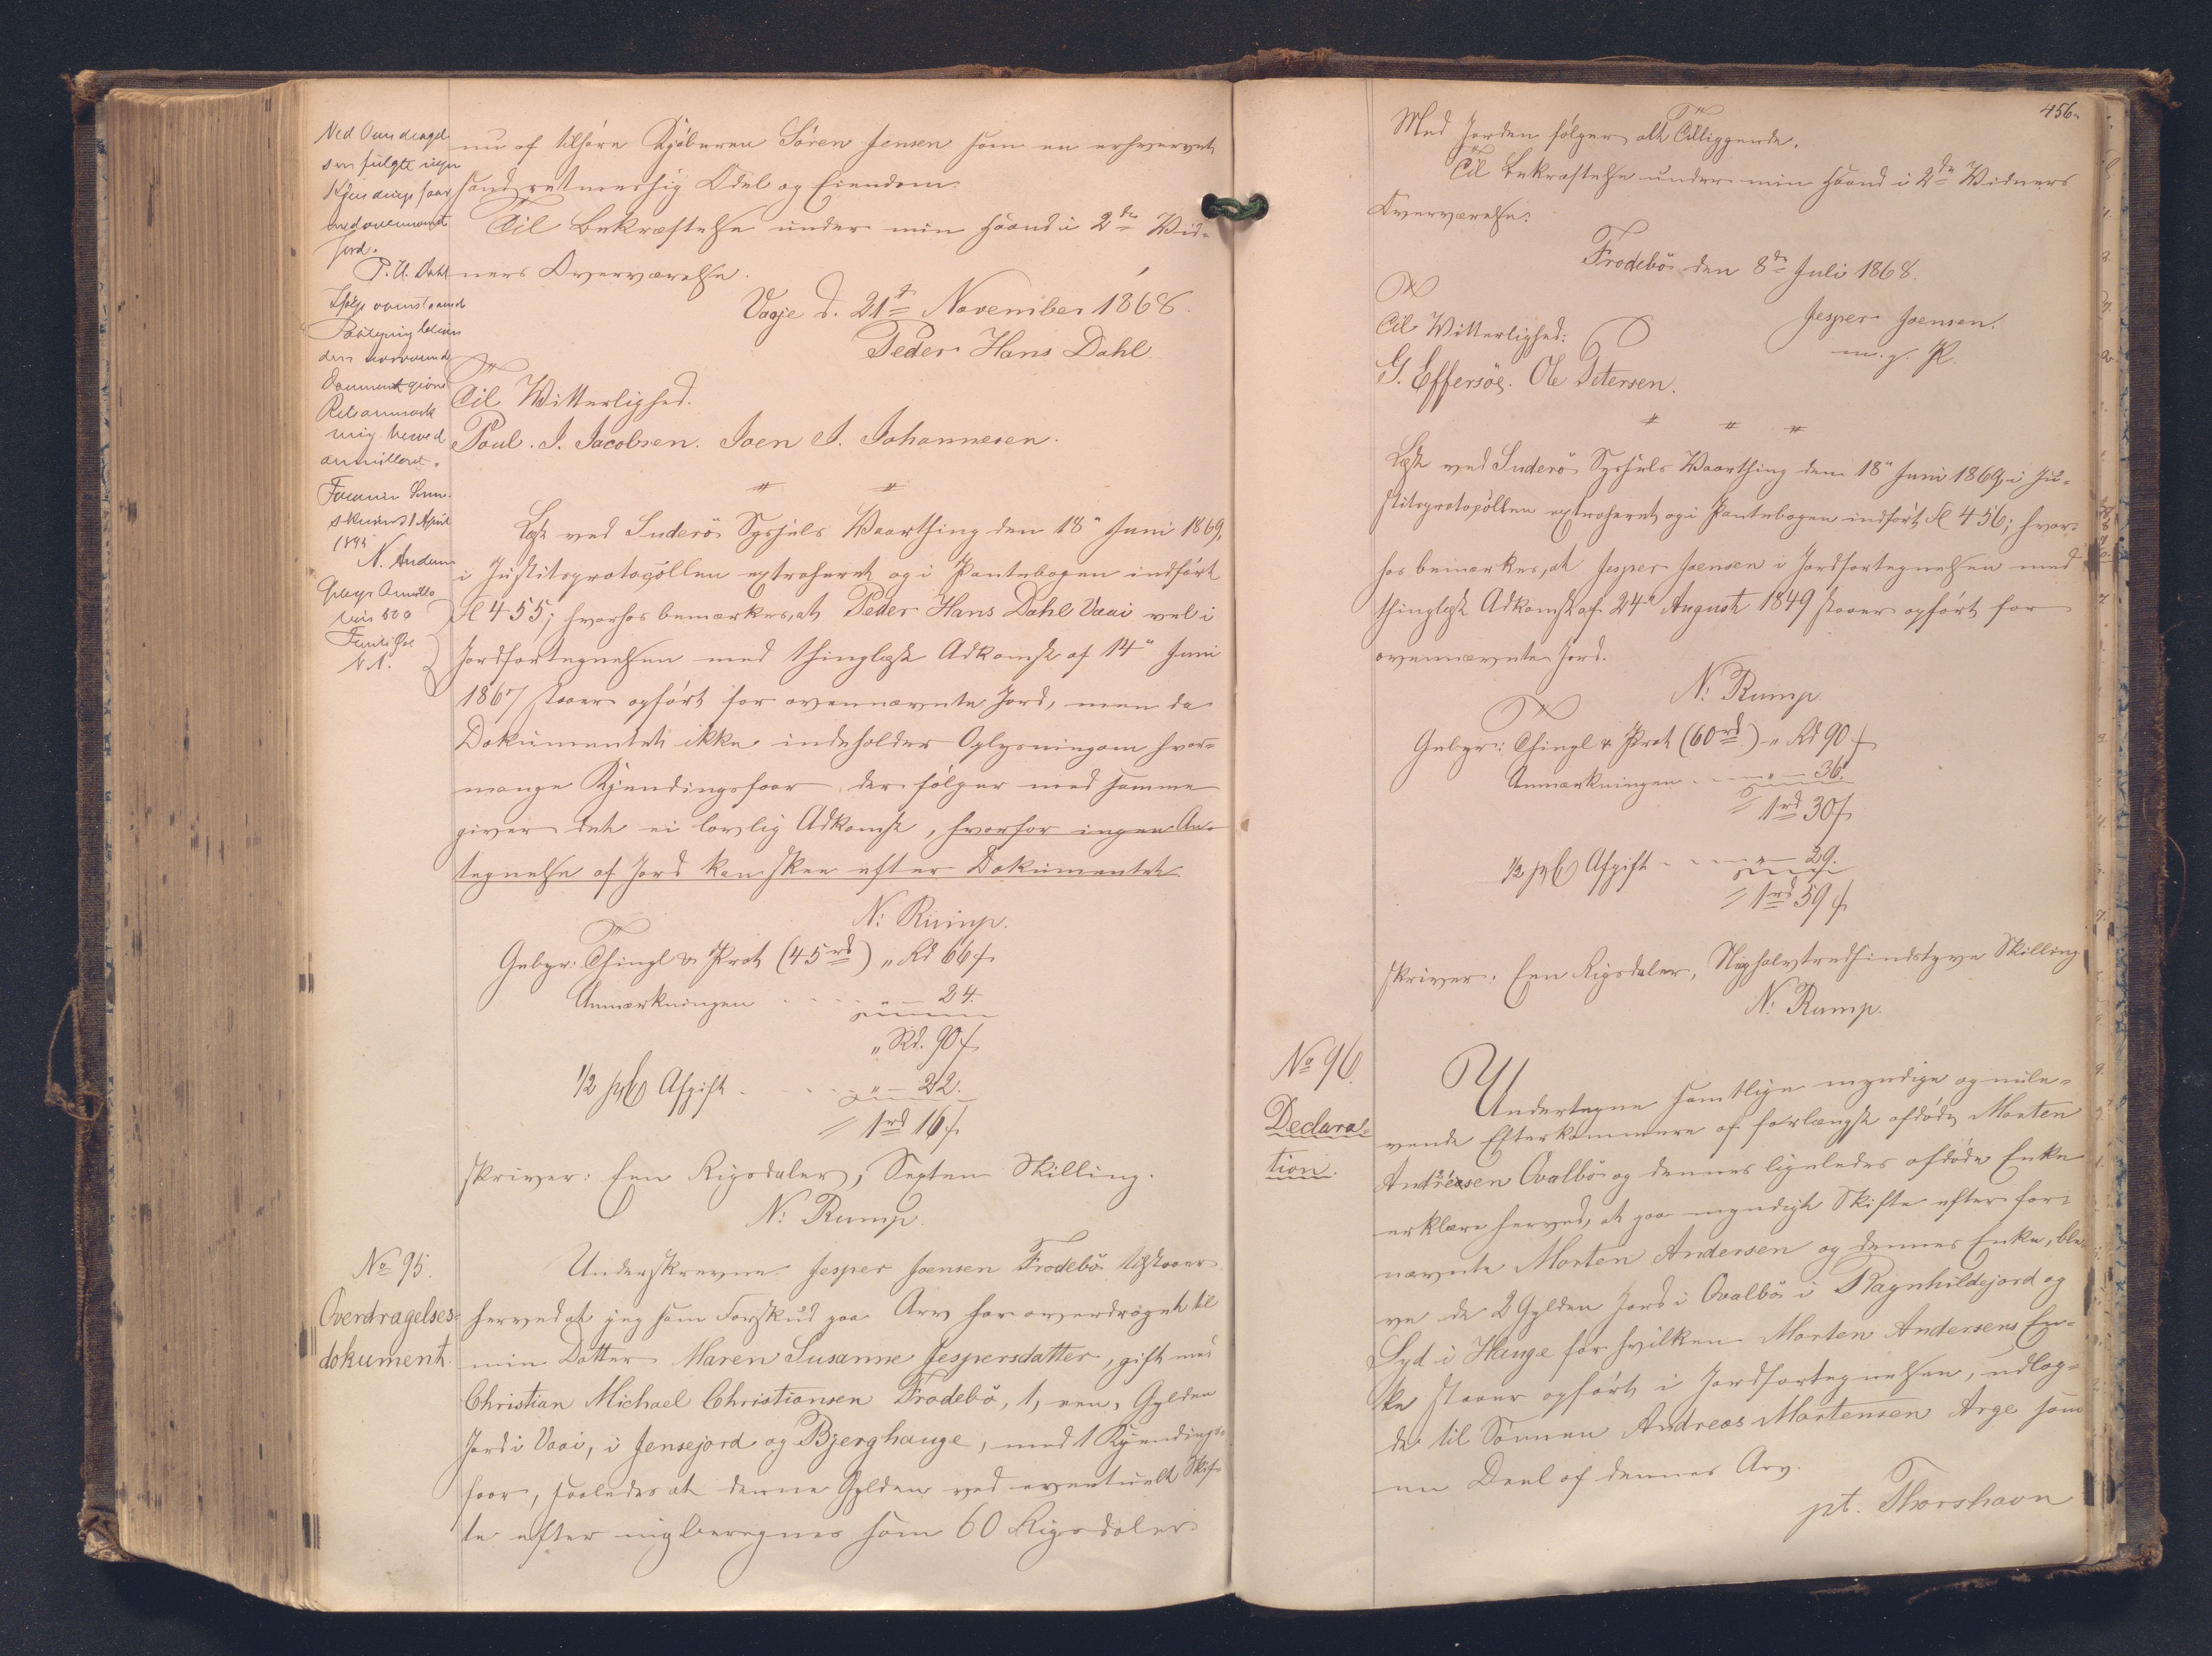 Ved Overdragel-
sen fulgte ingen
Kjendingsfaar
med ovennævnt
Jord.
P. H. Dahl
Ifølge ovenstaaende
Paategning
den
Dokument givne
Retsanmærk
ning herved
annulleret.
Færøernes Soren-
skriveri 1 April
N. Andersen
Gebyr
N. A.
nu af tilhøre Kjøberen Sören Jensen som en erhvervet
sand retmessig Odel og Eiendom.
Til Bekræftelse under min Haand i 2de Vid-
ners Overværelse.
Vaaje d. 21de November 1868.
Peder Hans Dahl.
Til Witterlighed.
Poul. J. Jacobsen. Joen J. Johannesen.
Læst ved Suderö Syssels Vaarthing den 18" Juni 1869,
i Justitsprotocollen extraheret og i Pantebogen indfört
Fol 455; hvorhos bemærkes, at Peder Hans Dahl Vaai vel i
Jordfortegnelsen med thinglæst Adkomst af 14" Juni
1867 staaer opfört for ovennævnte Jord, men da
Dokumentet ikke indeholder Oplysning om hvor-
mange Kjendingsfaar der fölger med samme
giver det ei lovlig Adkomst, hvorfor ingen An-
tegnelse af Jord kan skee efter Dokumentet.
N: Rump.
Gebyr: Thingl & Prot (45rd) " Rd 66 s
Anmærkningen " — 24.
" Rd. 90 s
1/2 pC Afgift " — 22.
= 1rd 16 s
skriver: Een Rigsdaler, Sexten Skilling.
N: Rump.
No 95.
Overdragelses-
dokument.
Underskrevne Jesper Joensen Frodebö tilstaaer
herved at jeg som Forskud paa Arv har overdraget til
min Datter Maren Susanne Jespersdatter, gift med
Christian Michael Christiansen Frodebö, 1, een, Gylden
Jord i Vaai, i Jensejord og Bjerghauge, med 1 Kjendings-
faar, saaledes at denne Gylden ved eventuelt Skif-
te efter mig beregnes som 60 Rigsdaler.
456.
Med Jorden fölger alt Tilliggende.
Til Bekræftelse under min Haand i 2de Vidners
Overværelse.
Frodebö den 8de Juli 1868.
Jesper Joensen.
m. p. P.
Til Witterlighed:
G. Effersöe. Ole Petersen.
Læst ved Suderö Syssels Vaarthing den 18" Juni 1869, i Ju-
stitsprotocollen extraheret og i Pantebogen indfört Fol 456; hvor-
hos bemærkes, at Jesper Joensen i Jordfortegnelsen med
thinglæst Adkomst af 24" August 1849 staaer opfört for
ovennævnte Jord.
N: Rump.
Gebyr: Thingl & Prot (60rd) " Rd 90 s
Anmærkningen " — 36.
= 1rd 30 s
1/2 pC Afgift " — 29.
= 1rd 59 s
skriver: Een Rigsdaler, Nihalvtredsindstyve Skilling
N: Rump.
No 96.
Declara-
tion.
Undertegnede samtlige myndige og nule-
vende Efterkommere af forlængst afdöde Morten
Andersen Qvalbö og dennes ligeledes afdöde Enke
erklære herved, at paa myndigt Skifte efter for-
nævnte Morten Andersen og dennes Enke, ble-
ve de 2 Gylden Jord i Qvalbö i Ragnhildejord og
Syd i Hauge for hvilken Morten Andersens En-
ke staaer opfört i Jordfortegnelsen, udlag-
de til Sönnen Andreas Mortensen Arge som
en Deel af dennes Arv.
pt. Thorshavn